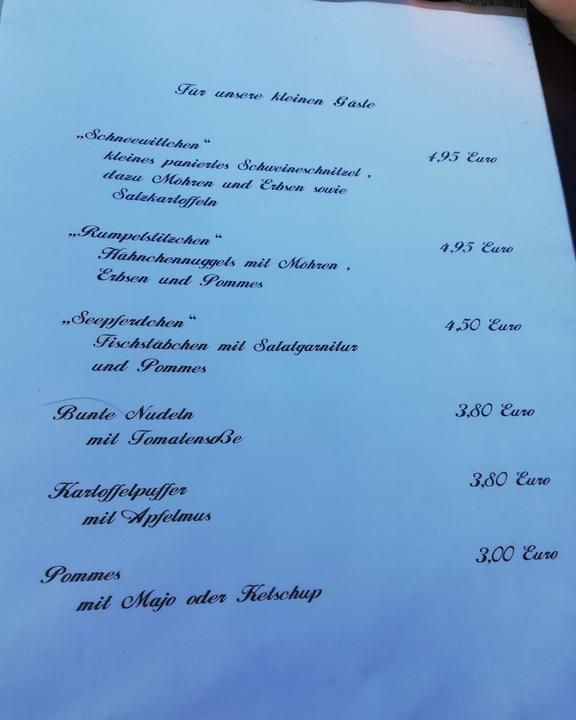 Für unsere kleinen Gäste
„Schneewittchen“ 4,95 Euro
kleines paniertes Schweineschnitzel ,
dazu Möhren und Erbsen sowie
Salzkartoffeln
„Rumpelstilzchen“ 4,95 Euro
Hähnchennuggets mit Möhren ,
Erbsen und Pommes
„Seepferdchen“ 4,50 Euro
Fischstäbchen mit Salatgarnitur
und Pommes
Bunte Nudeln 3,80 Euro
mit Tomatensoße
Kartoffelpuffer 3,80 Euro
mit Apfelmus
Pommes 3,00 Euro
mit Majo oder Ketschup